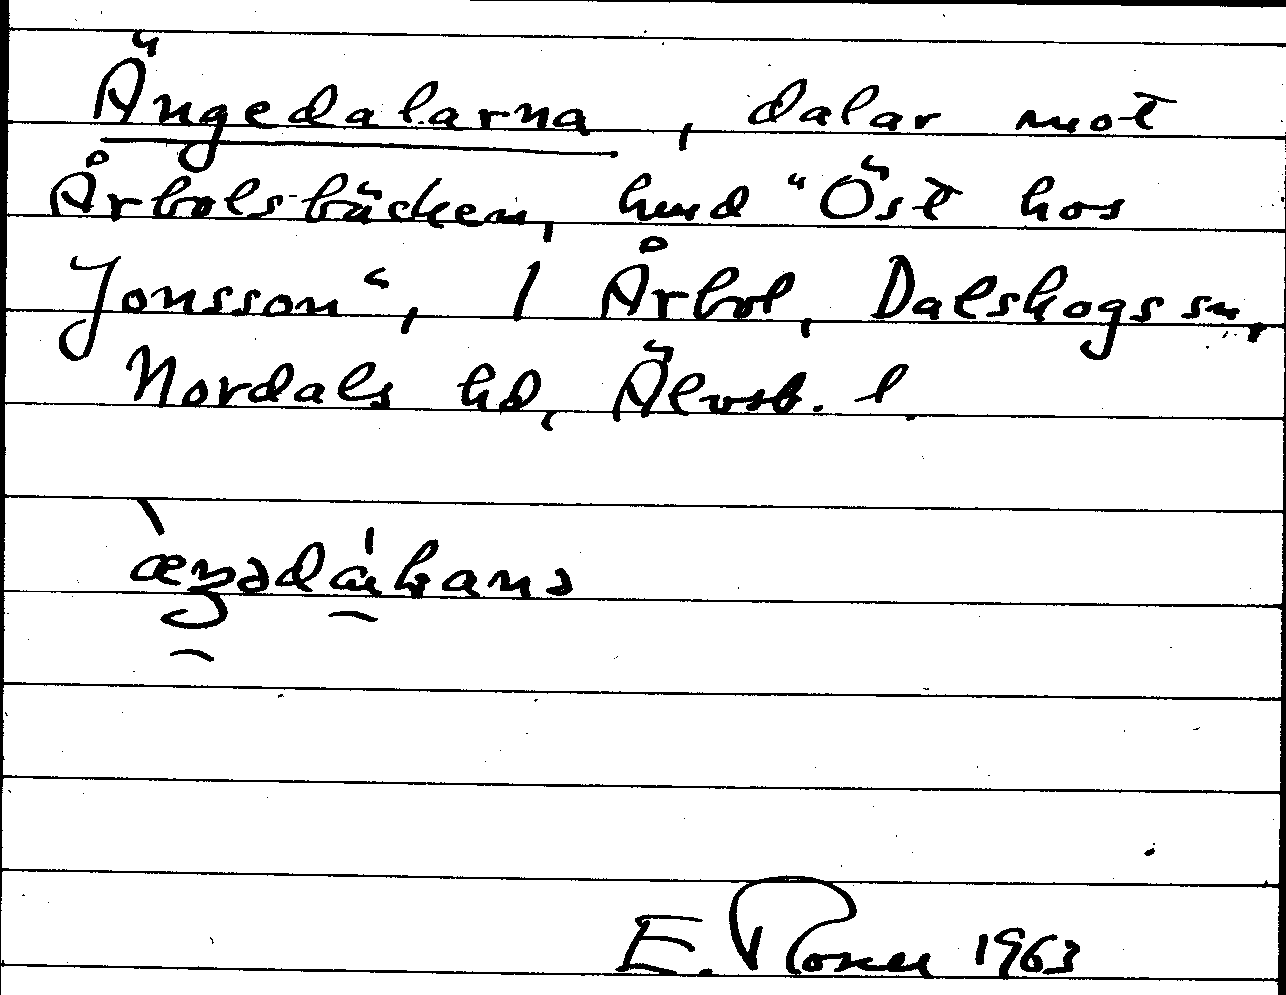 Ängedalarna, dalar mot
Årbolsbäcken, hmd "Öst hos
Jonsson", 1 Årbol, Dalskogs sn,
Nordals hd, Älvsb. l.
E. Rosell 1963